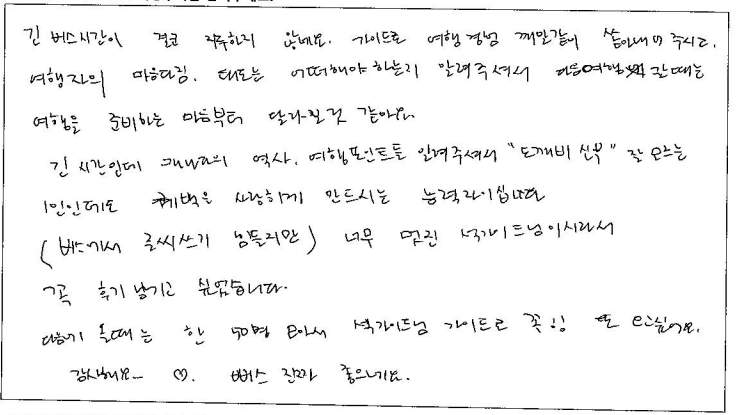 긴 버스시간이 결코 지루하지 않네요. 가이드로 여행경험 깨알같이 쏟아내어 주시고.
여행자의 마음다짐. 태도는 어떠해야 하는지 알려주셔서 다음여행 갈때는
여행을 준비하는 마음부터 달라질것 같아요.
긴 시간인데 캐나다의 역사. 여행포인트를 알려주셔서 "도깨비 신부" 잘 모르는
1인인데도 퀘백을 사랑하게 만드시는 능력자이십니다
(버스에서 글씨쓰기 힘들지만) 너무 멋진 석가이드님이시라서
꼭 후기 남기고 싶었습니다.
다음에 올때는 한 50명 모아서 석가이드님 가이드로 꼭!! 또 오고싶어요.
감사해요~ ♡. 버스 진짜 좋으네요.